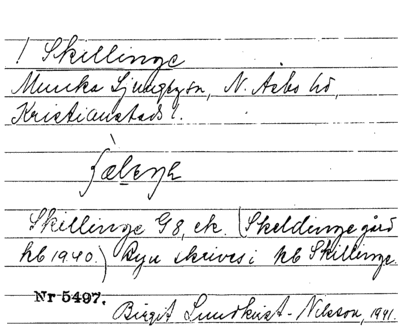 / Skillinge
Munka Ljungbysn, N. Åsbo hd,
Kristianstads l.
Skillinge G 8, ek. (Skeldinge gård
kb 1940.) Byn skrives i kb Skillinge.
Nr 5497.
Birgit Lundkvist-Nilsson, 1941.